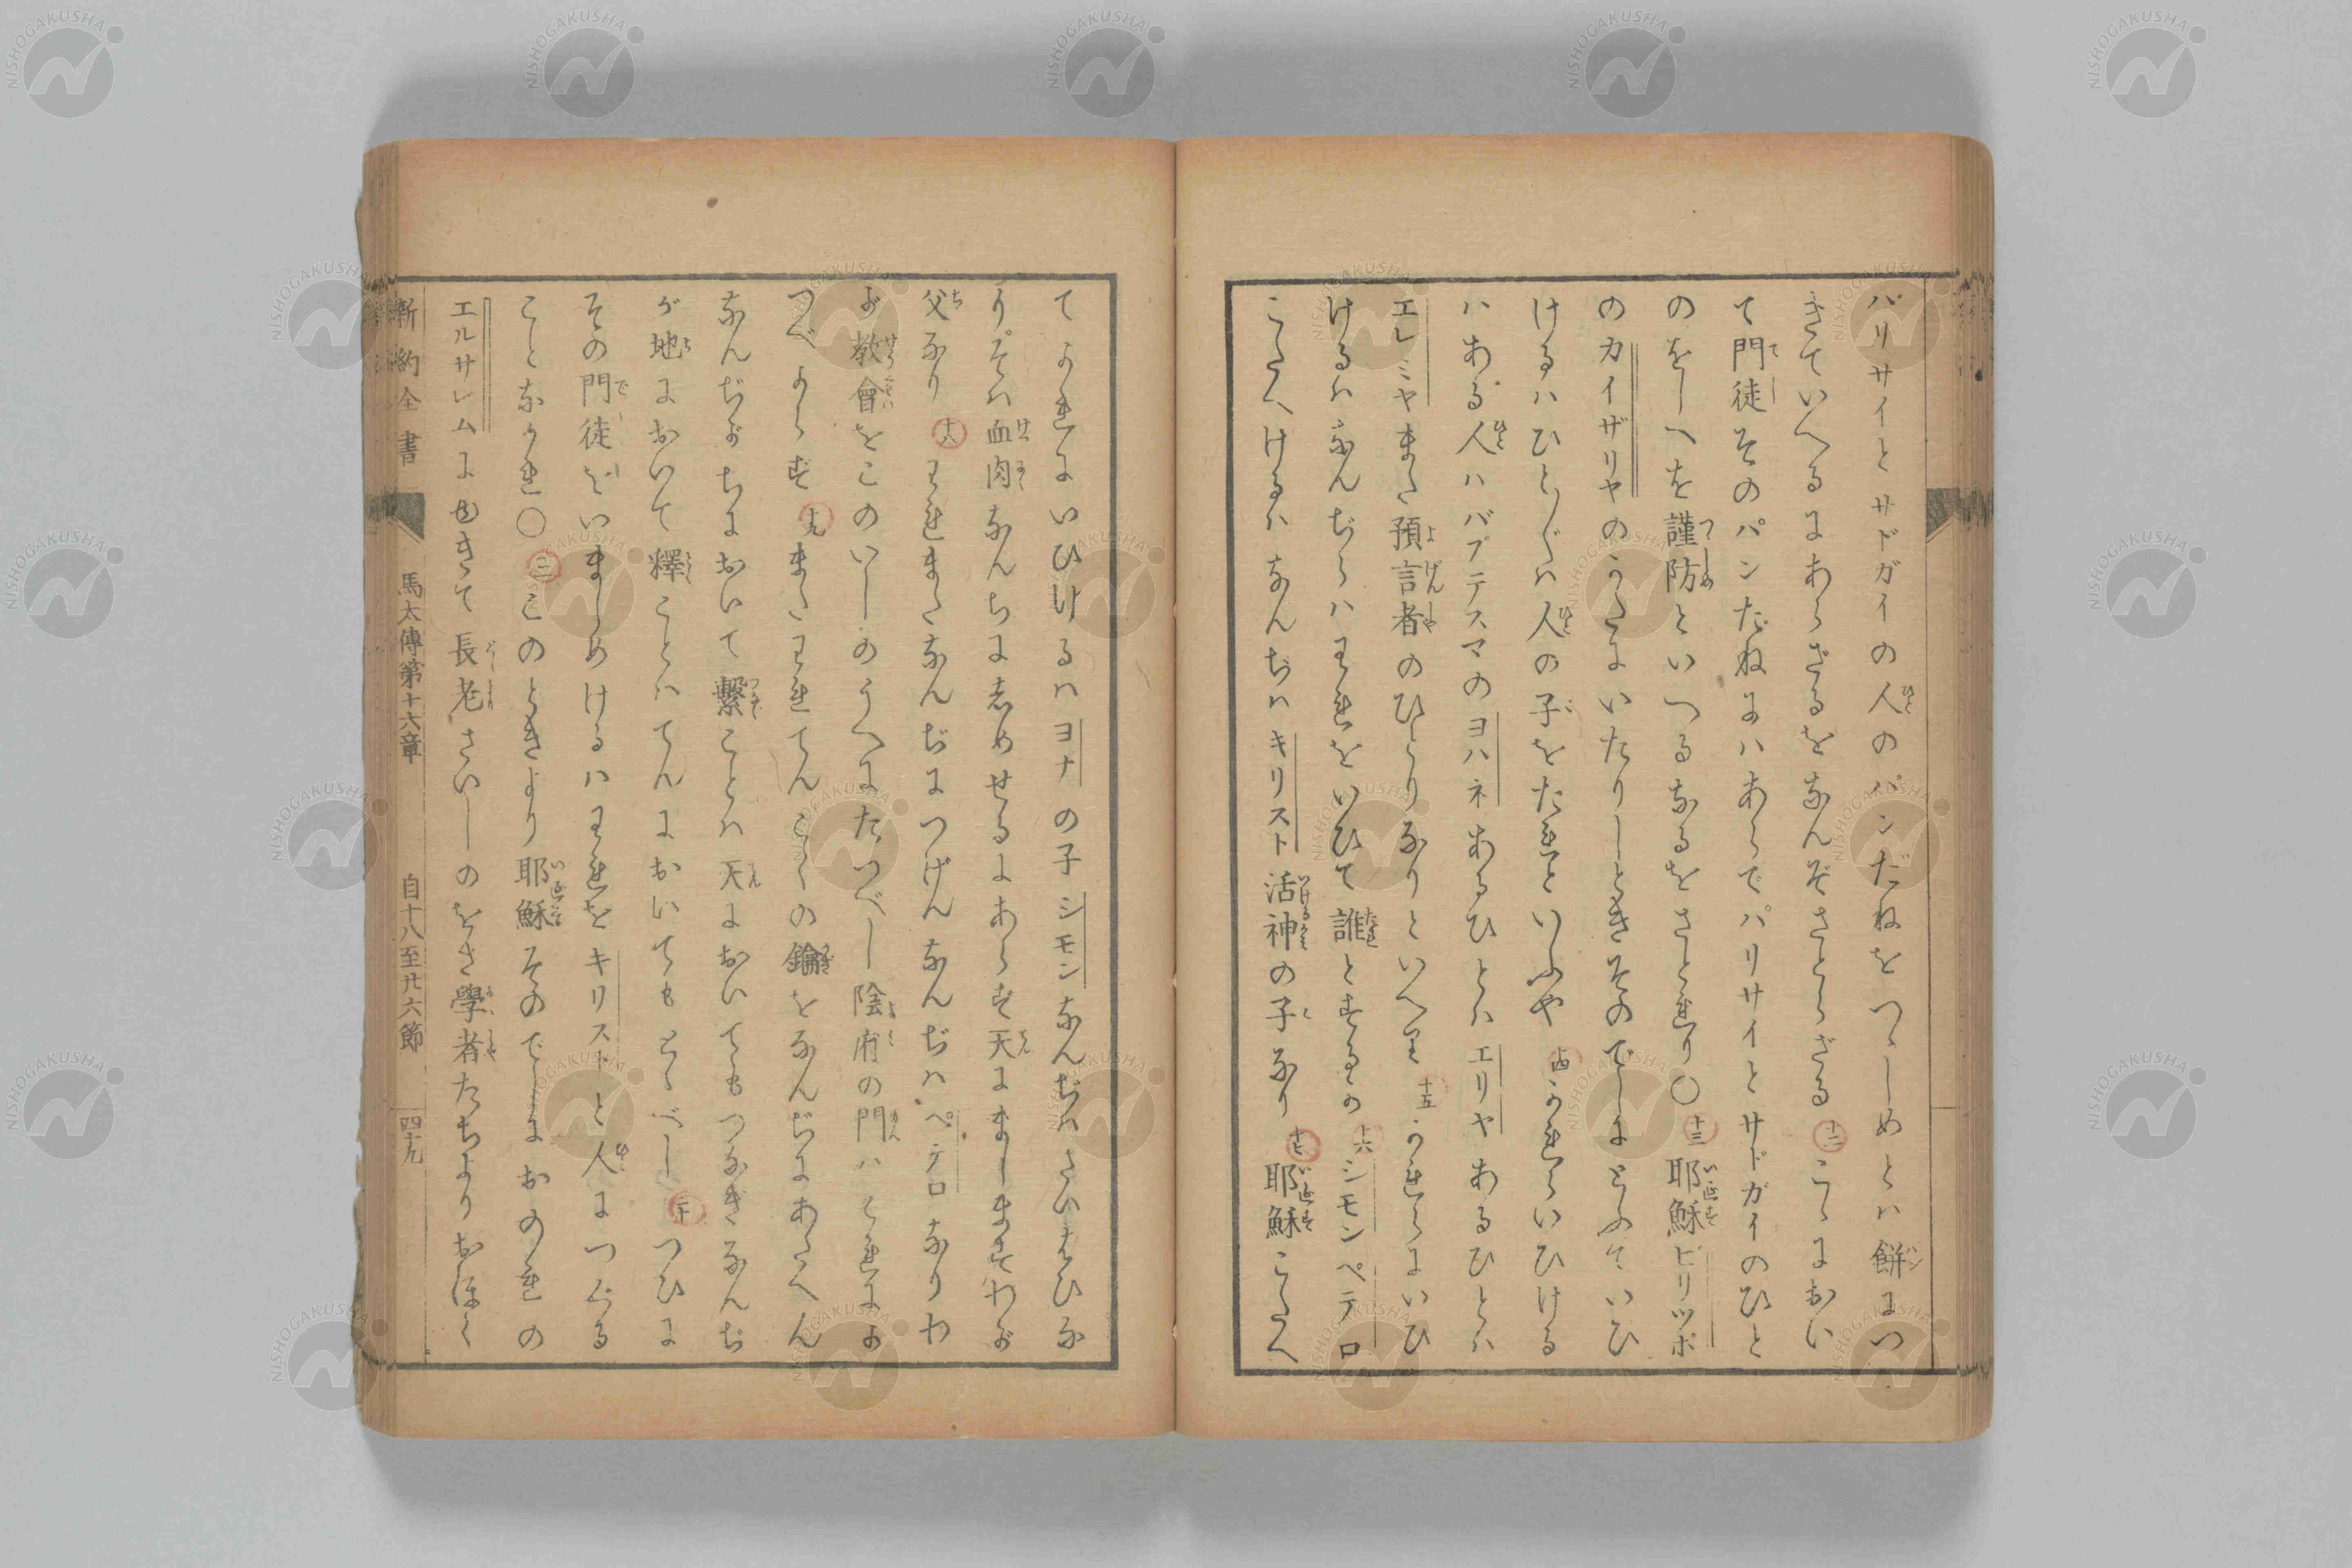 パリサイとサドガイの人のパンだねをつゝしめとハ餅につ
きていへるにあらざるをなんぞさとらざる 十二 こゝにおい
て門徒そのパンだねにハあらでパリサイとサドガイのひと
のをしへを謹防といへるなるをさとれり〇 十三 耶穌ピリツポ
のカイザリヤのかたにいたりしときそのでしにとふていひ
けるハひと〴〵ハ人の子をたれといふや 十四 かれらいひける
ハある人ハバプテスマのヨハネあるひとハエリヤあるひとハ
エレミヤまた預言者のひとりなりといへり 十五 かれらにいひ
けるハなんぢらハわれをいひて誰とするか 十六 シモンペテロ
こたへけるハなんぢハキリスト活神の子なり 十七 耶穌こたへ
てかれにいひけるハヨナの子シモンなんぢハさいはひな
り。そハ血肉なんぢに志めせるにあらず天にましますわが
父なり 十八 われまたなんぢにつげんなんぢハペテロなりわ
が教會をこのいしのうへにたつべし陰府の門ハこれにか
つべからず 十九 またわれてんこくの鑰をなんぢにあたへん
なんぢが ちにおいて繫ことハ天においてもつなぎなんぢ
が地において釋ことハてんにおいてもとくべし 二十 つひに
その門徒をいましめけるハわれをキリストと人につぐる
ことなかれ〇 二一 このときより耶穌そのでしにおのれの
エルサレムにゆきて長老さいしのをさ學者たちよりおほく
新約全書 馬太傳第十六章 自十八至廿六節 四十九